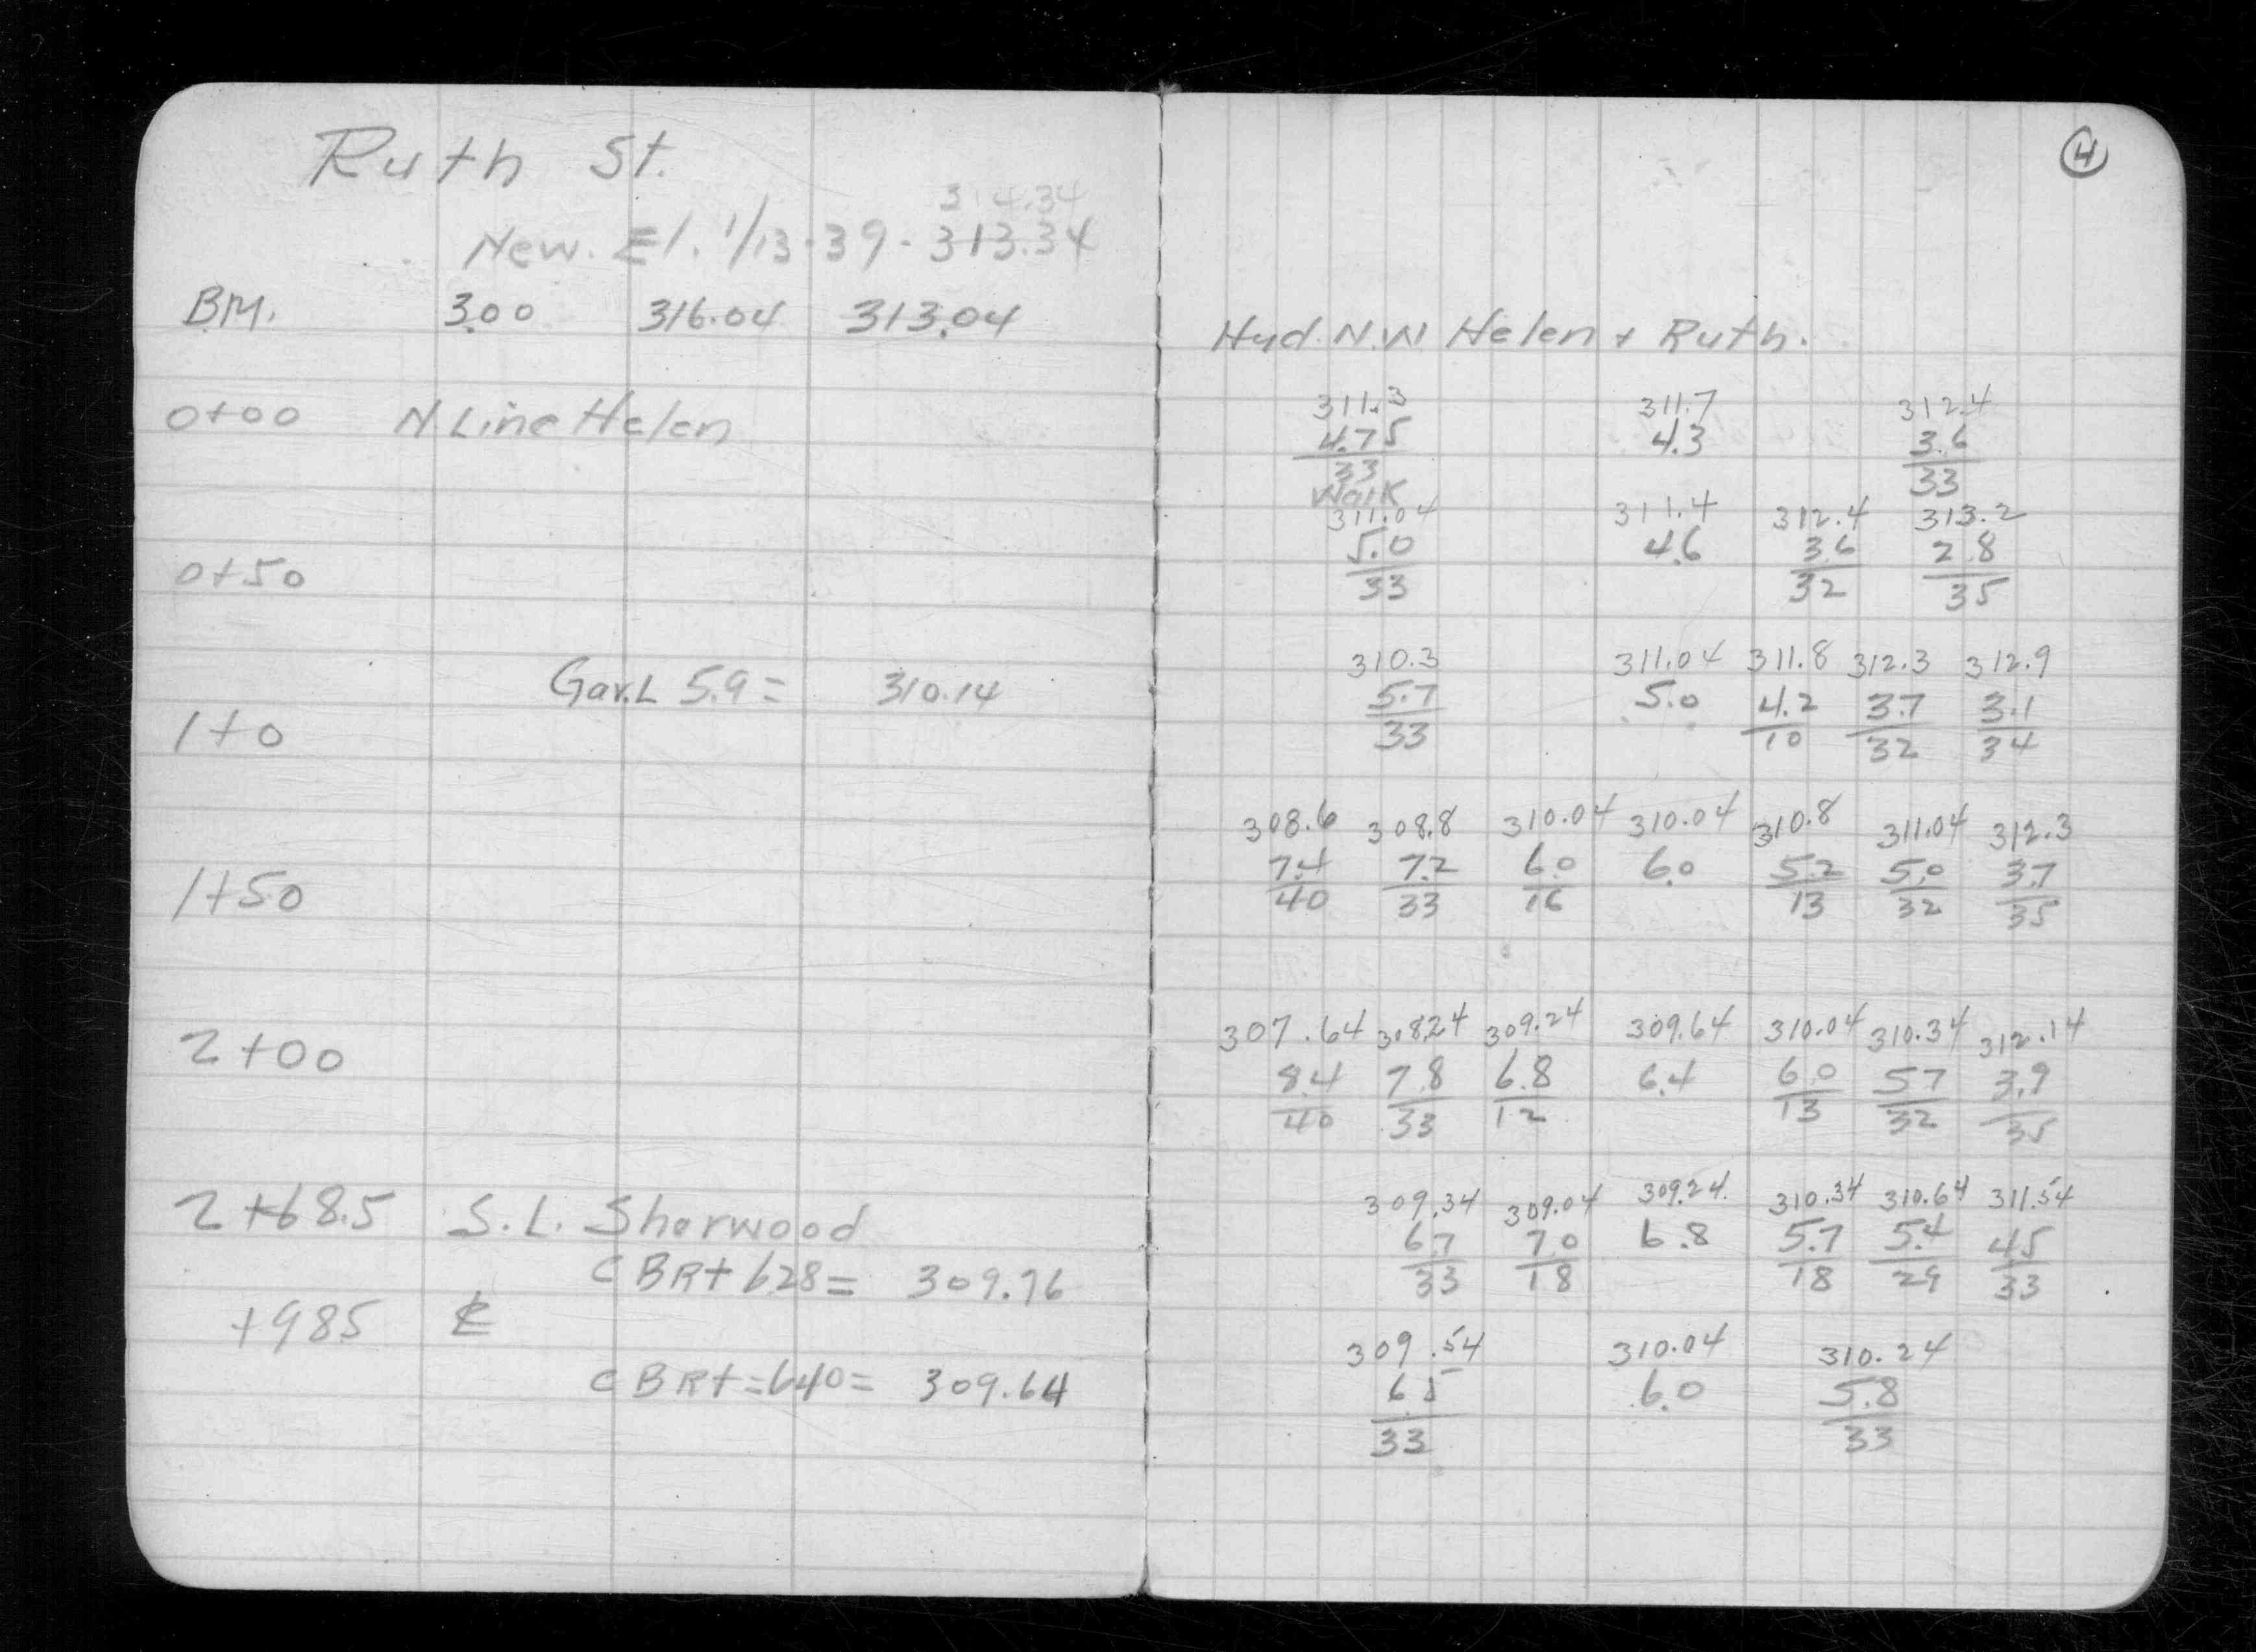 Ruth St.
314.34
New. El. 1/13-39 - 313.34
BM. 3.00 316.04 313.04
0+00 N Line Helen
0+50
Gar.L 5.9 = 310.14
1+0
1+50
2+00
2+68.5 S.L. Sherwood
CBRt 628 = 309.76
+985 ℄
CBRt = 640 = 309.64
4
Hyd. N.W. Helen + Ruth.
311.3 311.7 312.4
4.75 4.3 3.6
33 33
Walk
311.04 311.4 312.4 313.2
5.0 4.6 3.6 2.8
33 32 35
310.3 311.04 311.8 312.3 312.9
5.7 5.0 4.2 3.7 3.1
33 10 32 34
308.6 308.8 310.04 310.04 310.8 311.04 312.3
7.4 7.2 6.0 6.0 5.2 5.0 3.7
40 33 16 13 32 35
307.64 308.24 309.24 309.64 310.04 310.34 312.14
8.4 7.8 6.8 6.4 6.0 5.7 3.9
40 33 12 13 32 35
309.34 309.04 309.24 310.34 310.64 311.54
6.7 7.0 6.8 5.7 5.4 4.5
33 18 18 29 33
309.54 310.04 310.24
6.5 6.0 5.8
33 33